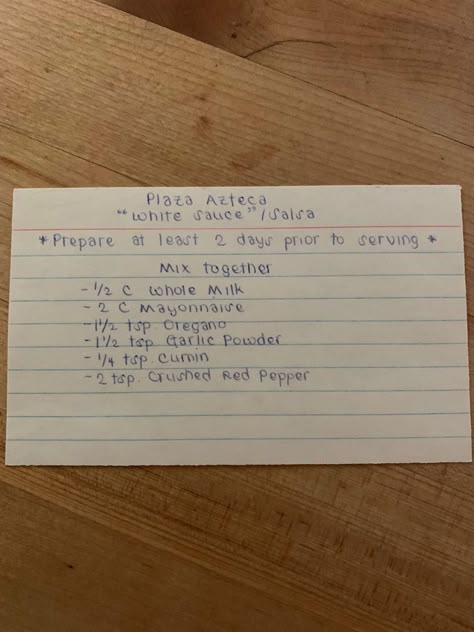 Plaza Azteca
"White Sauce"/Salsa
*Prepare at least 2 days prior to serving*
Mix together
-1/2 C Whole Milk
- 2 C Mayonnaise
-1 1/2 tsp. Oregano
-1 1/2 tsp Garlic Powder
- 1/4 tsp. Cumin
- 2 tsp. Crushed Red Pepper